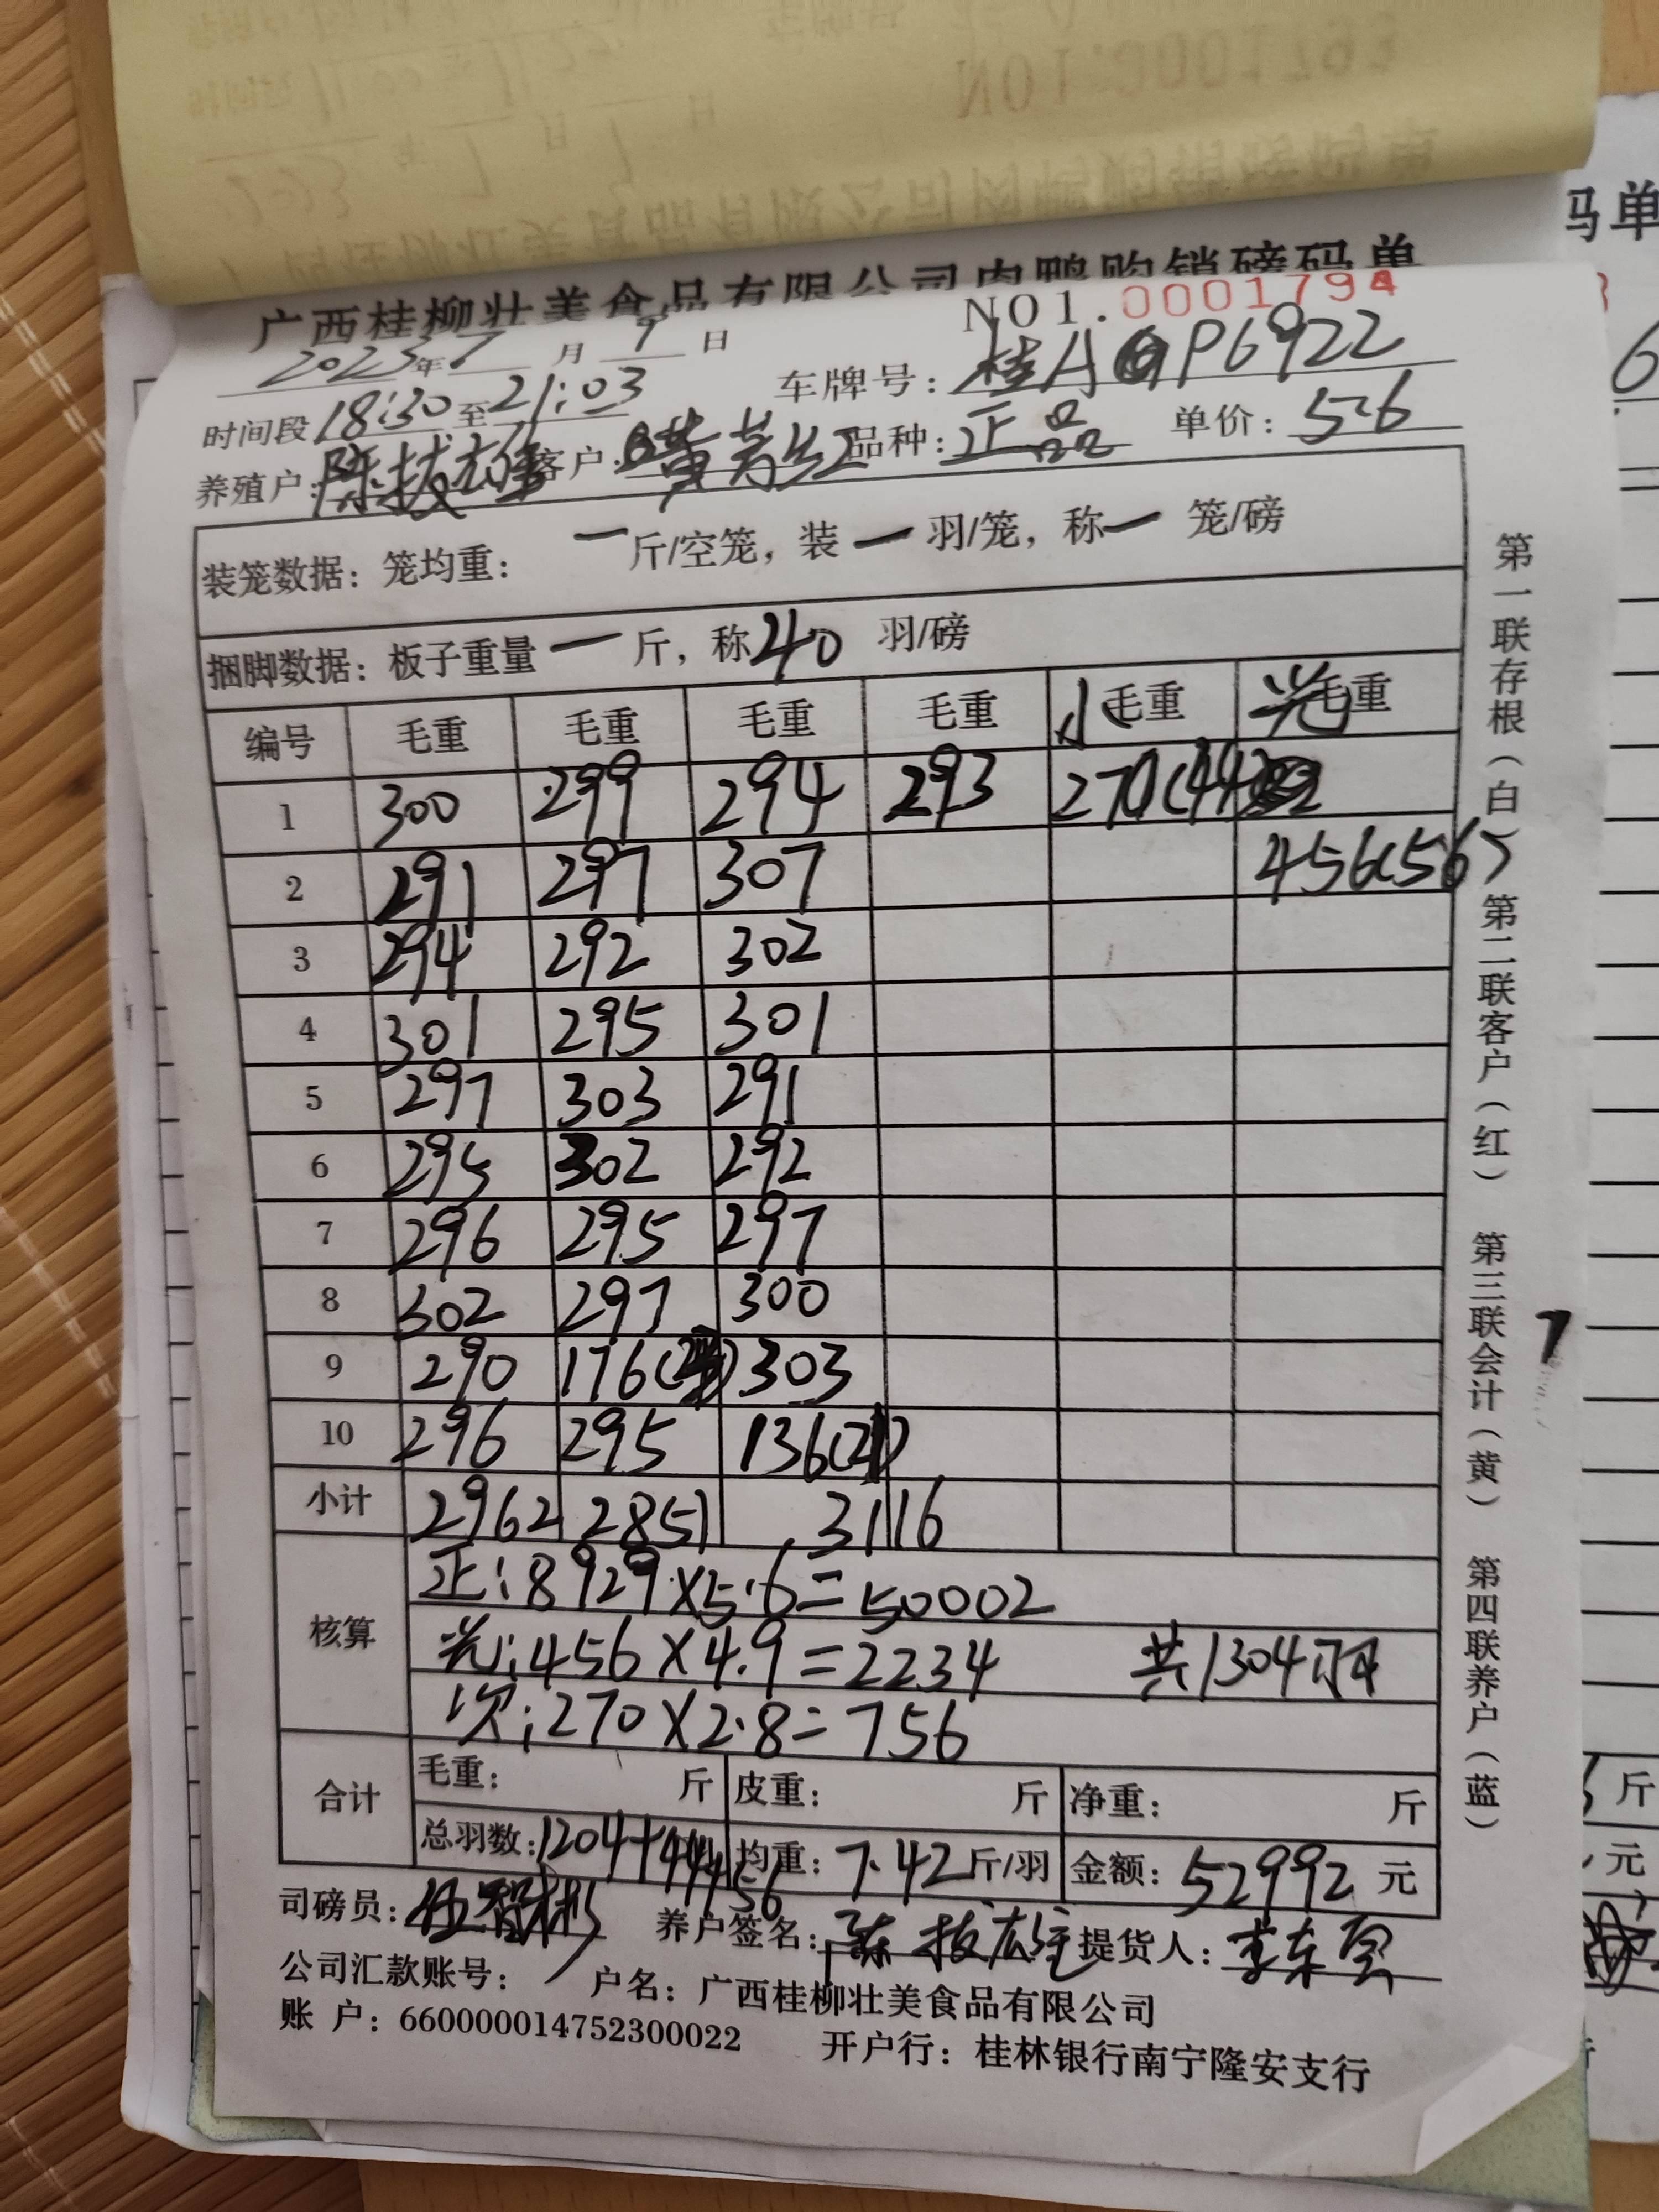 广西桂柳壮美食品有限公司肉鸭购销磅码单
NO1.0001794
2023年7月7日
时间段18:30至21:03 车牌号:桂A P6922
养殖户:陈拔雄 客户:黄 品种:正品 单价:5.6
装笼数据:笼均重:一斤/空笼,装一羽/笼,称一笼/磅
捆脚数据:板子重量一斤,称40羽/磅
编号 毛重 毛重 毛重 毛重 小毛重 光毛重
1 300 299 294 293 270(44)
2 291 297 307 456(56)
3 294 292 302
4 301 295 301
5 297 303 291
6 295 302 292
7 296 295 297
8 302 297 300
9 290 176 303
10 296 295 136(21)
小计 2962 2851 3116
核算 正:8929×5.6=50002
光:456×4.9=2234 共1304羽
次:270×2.8=756
合计 毛重: 斤 皮重: 斤 净重: 斤
总羽数:1204+44+56 均重:7.42斤/羽 金额:52992元
司磅员: 养户签名:陈拔雄 提货人:李东
公司汇款账号: 户名:广西桂柳壮美食品有限公司
账户:660000014752300022 开户行:桂林银行南宁隆安支行
第一联存根(白) 第二联客户(红) 第三联会计(黄) 第四联养户(蓝)
码单
斤
元